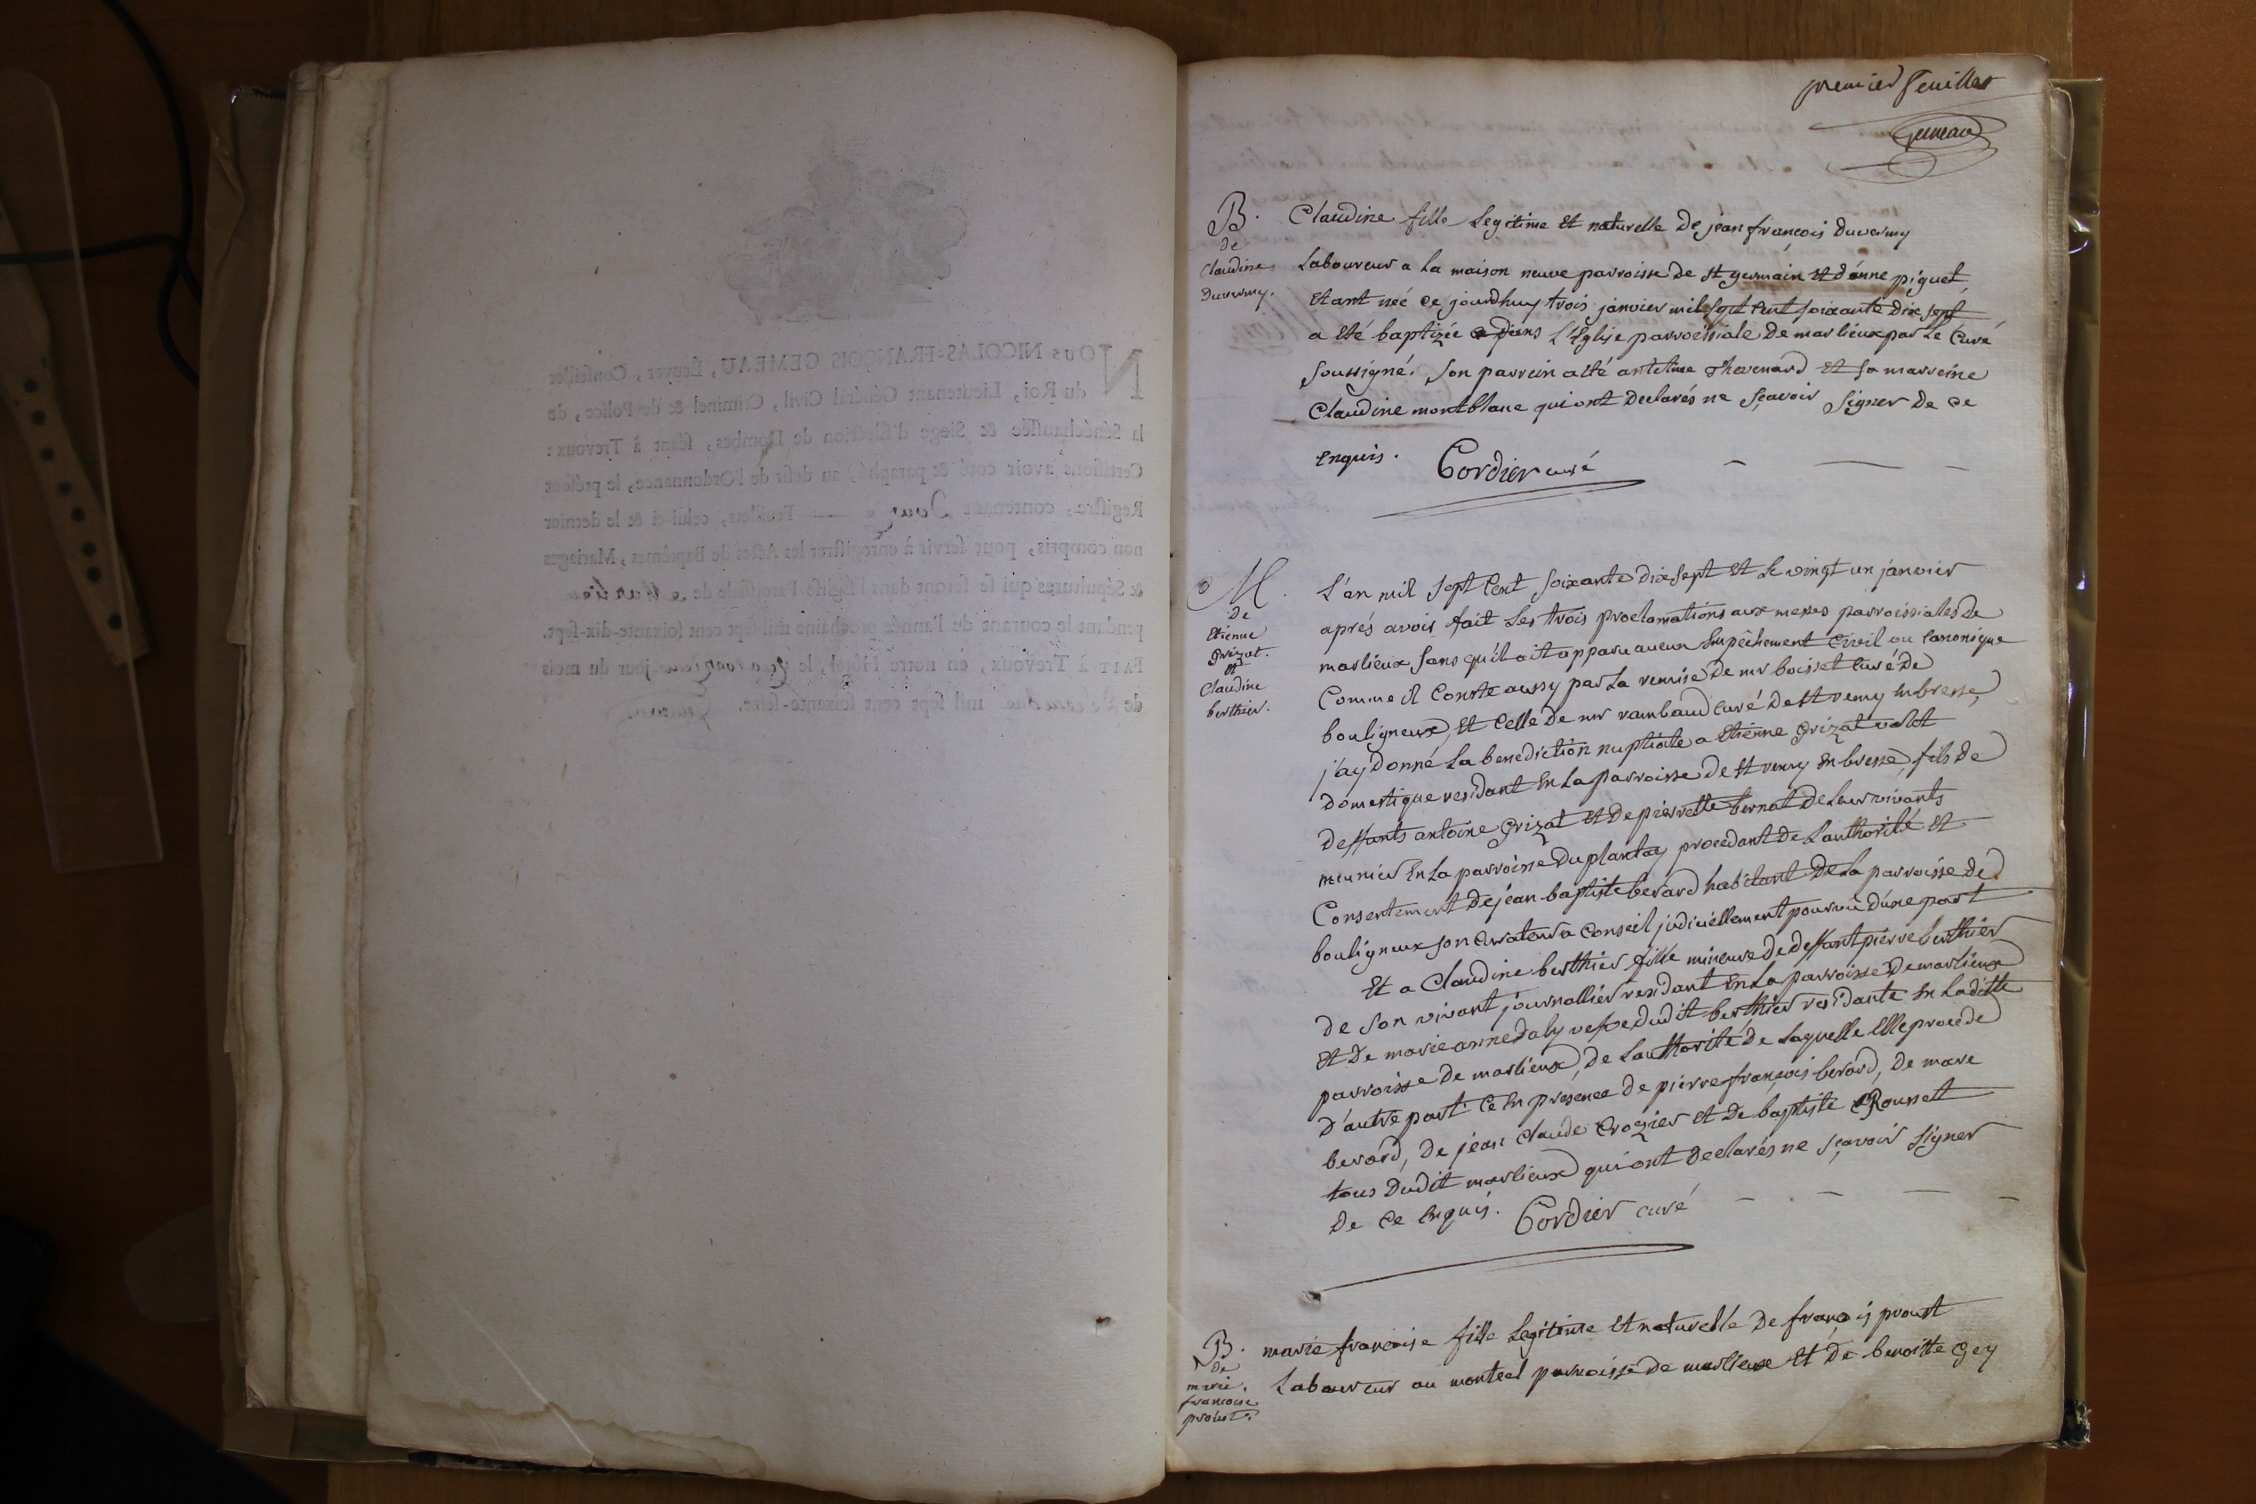 NOUS NICOLAS-FRANÇOIS GEMEAU, Ecuyer, Conseiller
du Roi, Lieutenant Général Civil, Criminel & de Police, de
la Sénéchaussée & Siege d'Election de Dombes, séant à Trevoux :
Certifions avoir coté & paraphé, au desir de l'Ordonnance, le présent
Registre, contenant Feuillets, celui-ci & le dernier
non compris, pour servir à enregistrer les Actes de Baptêmes, Mariages
& Sépultures qui se feront dans l'Eglise Paroissiale de Marlieu
pendant le courant de l'année prochaine mil sept cent soixante-dix-sept.
FAIT à Trevoux, en notre Hôtel, le jour du mois
de mil sept cent soixante-seize. Gemeau
premier feuillet
Gemeau
B.
de
Claudine
Duvermy.
Claudine fille Legitime Et naturelle De jean françois Duvermy
Laboureur a La maison neuve parroisse de st germain Et d'anne piquet
Etant neé ce jourdhuy trois janvier mil sept cent soixante dix sept
a Eté baptizée dans L'Eglise parroissiale De marlieux par Le Curé
soussigné. son parrein a Eté antelme Thevenard Et sa marreine
Claudine montblanc qui ont Declarés ne sçavoir signer De ce
Enquis. Cordier curé
M.
De
Etienne
Grizat.
Et
Claudine
berthier.
L'an mil sept Cent soixante dix sept Et Le vingt un janvier
aprés avoir fait Les trois proclamations aux messes parroissiales De
marlieux sans qu'il ait apparu aucun Empêchement Civil ou Canonique
Comme il Conste aussy par La remise de mr boisset Curé De
bouligneux, Et Celle De mr rambaud curé De st remy En bresse,
j'ay Donné La benediction nuptiale a Etienne Grizat valet
Domestique residant En La parroisse De st remy En bresse, fils De
Deffunts antoine Grizat Et De pierrette bernat De Leur vivants
meunier En La parroisse Du plantay procedant De L'authorité Et
Consentement De jean-baptiste berard habitant De La parroisse De
bouligneux son Curateur a Conseil judiciellement pourvû d'une part
Et a Claudine berthier fille mineure De Deffunt pierre berthier
De son vivant journallier residant En La parroisse De marlieux
Et De marie anne Daly vefve Dudit berthier residante En Laditte
parroisse De marlieux, De L'authorité De Laquelle Elle procede
D'autre part. Ce En presence De pierre françois berard, De marc
berard, De jean Claude Crozier Et De baptiste Rousset
tous Dudit marlieux qui ont Declarés ne sçavoir signer
De Ce Enquis. Cordier curé
B.
de
marie.
francoise
proust.
marie françoise fille Legitime Et naturelle De françois proust
Laboureur au monteel parroisse de marlieux Et De benoitte Gey